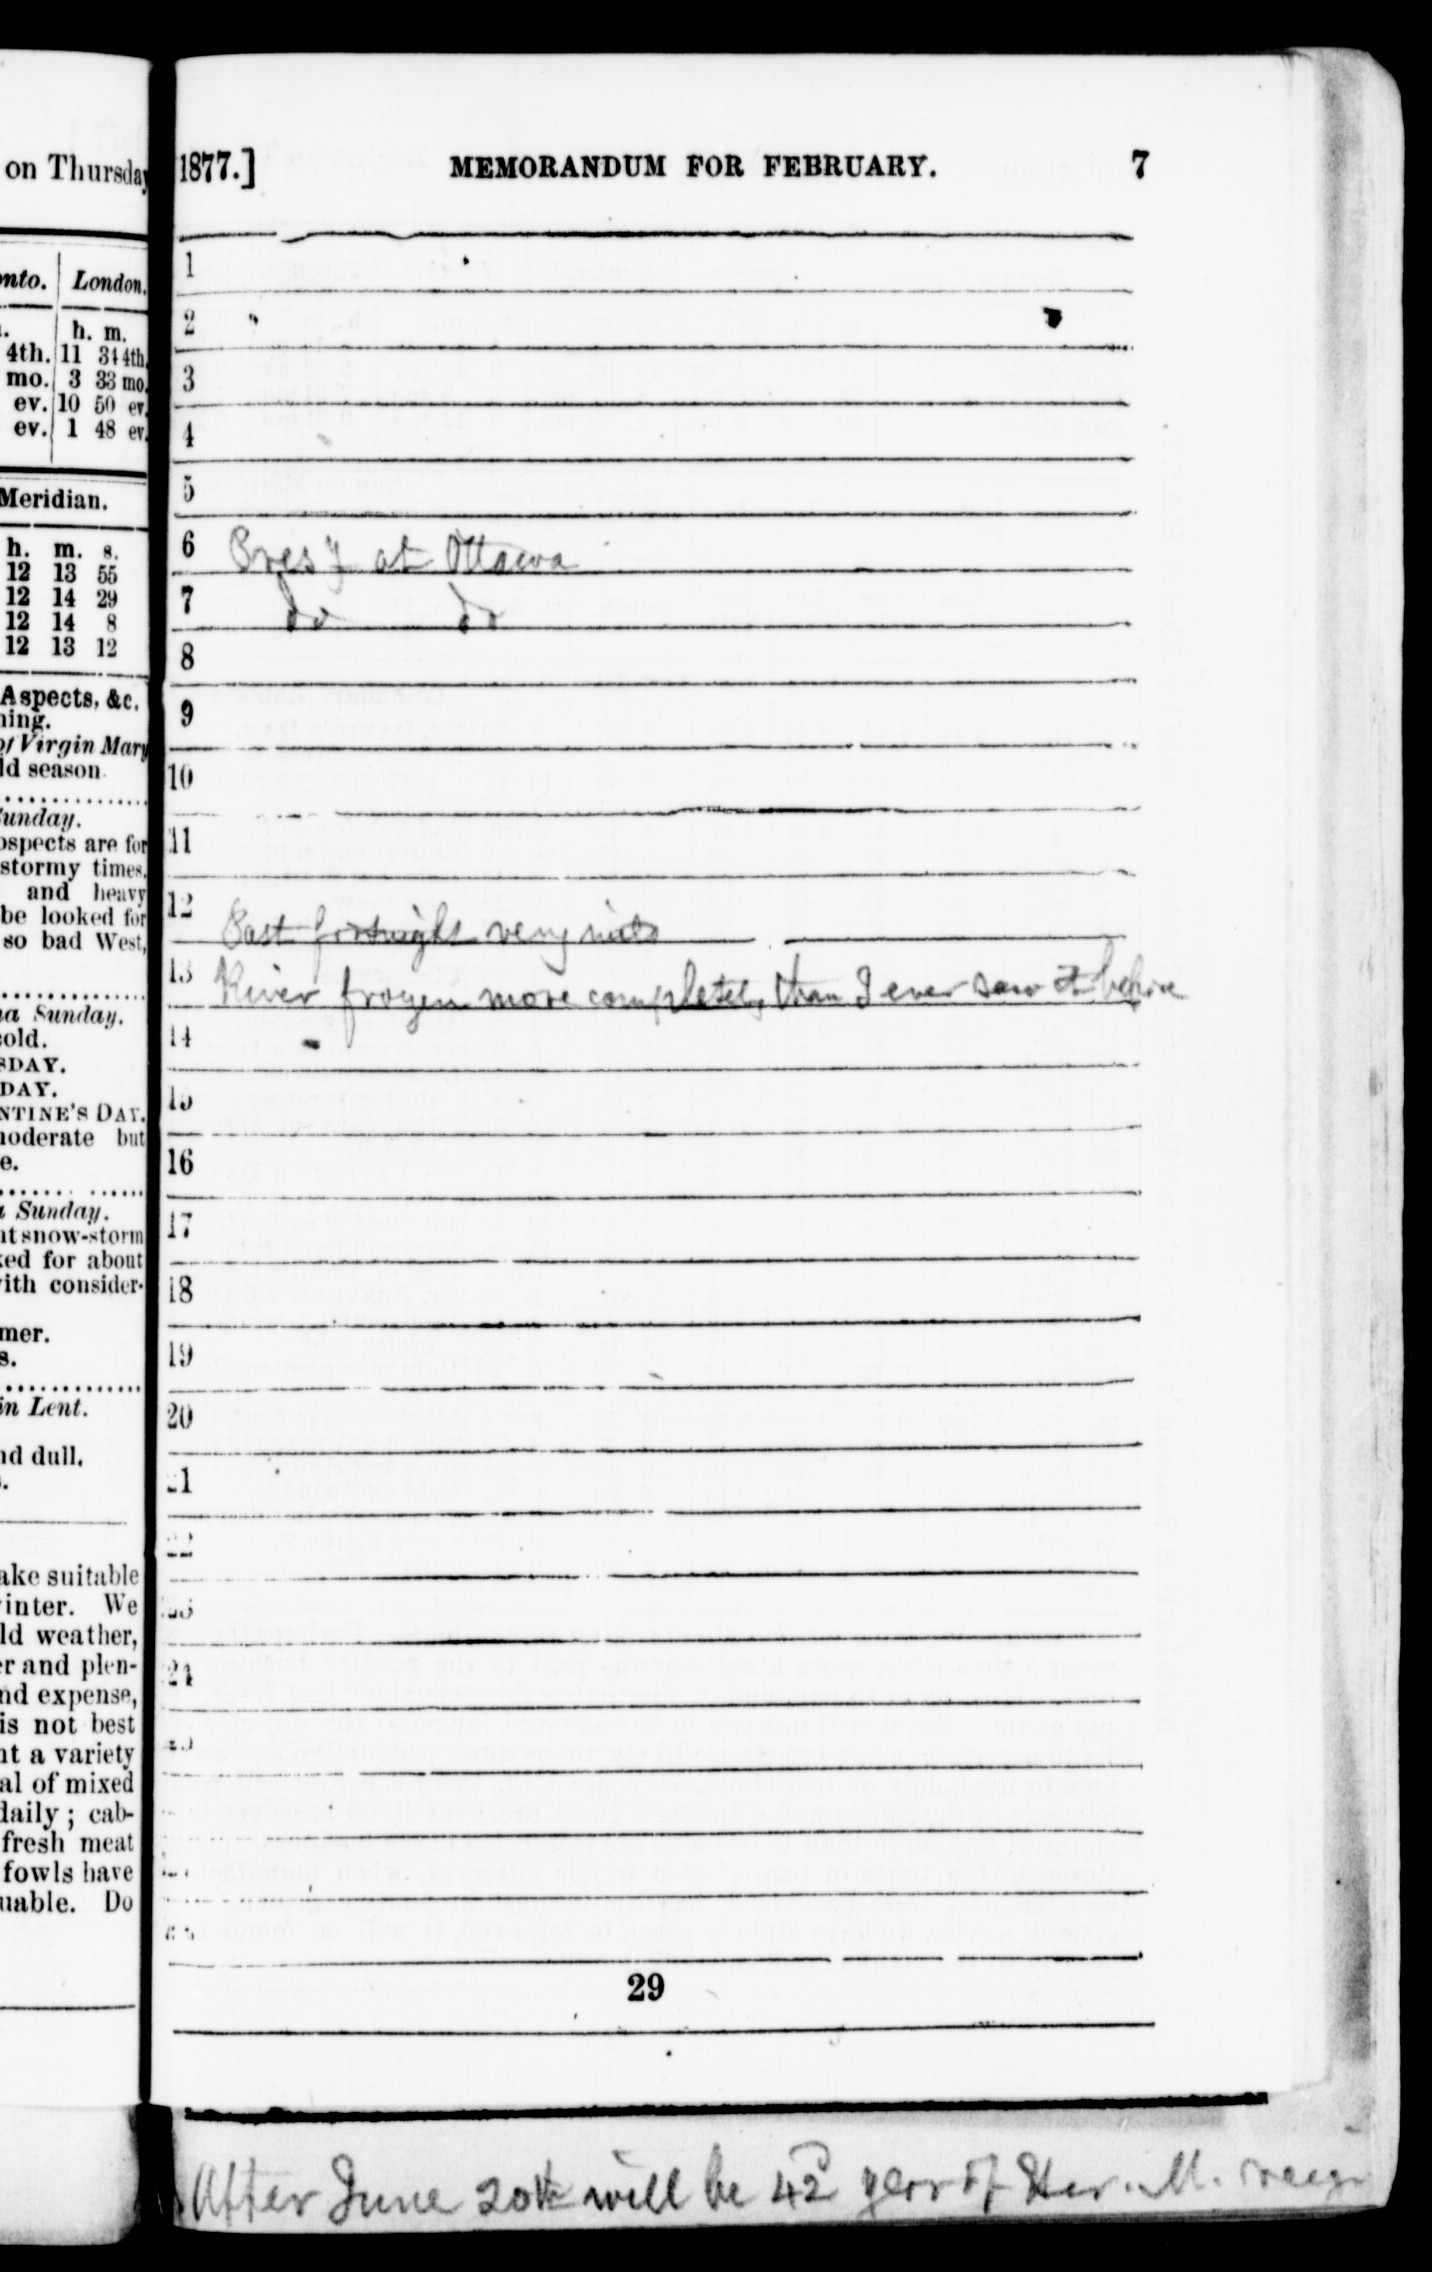 on Thursday
onto. London.
h. m.
4th. 11 34 4th.
mo. 3 33 mo.
ev. 10 50 ev.
ev. 1 48 ev.
Meridian.
h. m. s.
12 13 55
12 14 29
12 14 8
12 13 12
Aspects, &c.
ning.
of Virgin Mary
ld season
Sunday.
ospects are for
stormy times.
and heavy
be looked for
so bad West,
ma Sunday.
cold.
SDAY.
DAY.
NTINE'S DAY.
moderate but
e.
a Sunday.
nt snow-storm
ked for about
with consider-
mer.
s.
in Lent.
nd dull.
ake suitable
inter. We
ld weather,
er and plen-
nd expense,
is not best
nt a variety
al of mixed
daily; cab-
fresh meat
fowls have
uable. Do
1877.] MEMORANDUM FOR FEBRUARY. 7
1
2
3
4
5
6 Pres'y at Ottawa
7 do do
8
9
10
11
12 Past fortnight very
13 River frozen more completely than I ever saw it before
14
15
16
17
18
19
20
21
22
23
24
29
After June 20th will be 42d year of Her. M. reign